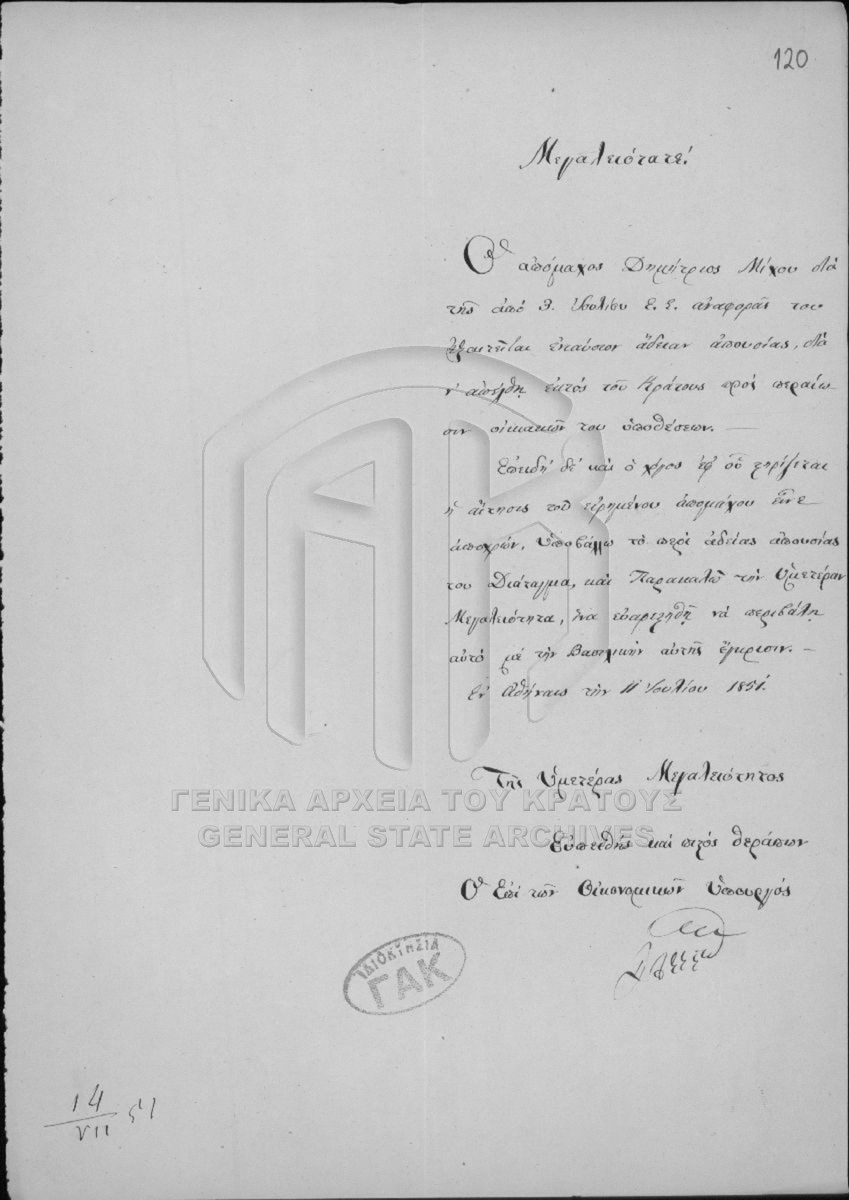 120
Μεγαλειότατε!
Ὁ ἀπόμαχος Δημήτριος Μίχου διὰ
τῆς ἀπὸ 9. Ἰουλίου ἐ. ἔ. ἀναφορᾶς του
ἐξαιτεῖται ἐνιαύσιον ἄδειαν ἀπουσίας, διὰ
ν' ἀπέλθῃ ἐκτὸς τοῦ Κράτους πρὸς περαίω-
σιν οἰκιακῶν του ὑποθέσεων. —
Ἐπειδὴ δὲ καὶ ὁ λόγος ἐφ' οὗ στηρίζεται
ἡ αἴτησις τοῦ εἰρημένου ἀπομάχου εἶνε
ἀποχρῶν, ὑποβάλλω τὸ περὶ ἀδείας ἀπουσίας
του Διάταγμα, καὶ Παρακαλῶ τὴν Ὑμετέραν
Μεγαλειότητα, ἵνα εὐαρεστηθῇ νὰ περιβάλῃ
αὐτὸ μὲ τὴν Βασιλικὴν αὐτῆς ἔγκρισιν. —
Ἐν Ἀθήναις τὴν 11 Ἰουλίου 1851.
Τῆς Ὑμετέρας Μεγαλειότητος
Εὐπειθὴς καὶ πιστὸς θεράπων
Ὁ Ἐπὶ τῶν Οἰκονομικῶν Ὑπουργός
ΓΕΝΙΚΑ ΑΡΧΕΙΑ ΤΟΥ ΚΡΑΤΟΥΣ
GENERAL STATE ARCHIVES
ΙΔΙΟΚΤΗΣΙΑ
ΓΑΚ
14
VII 51